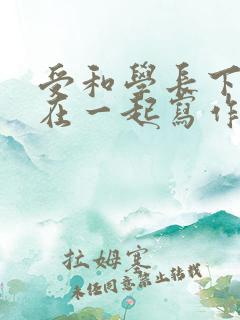 受和學長下
在一起寫作
拉姆寒
未任同意禁止转载